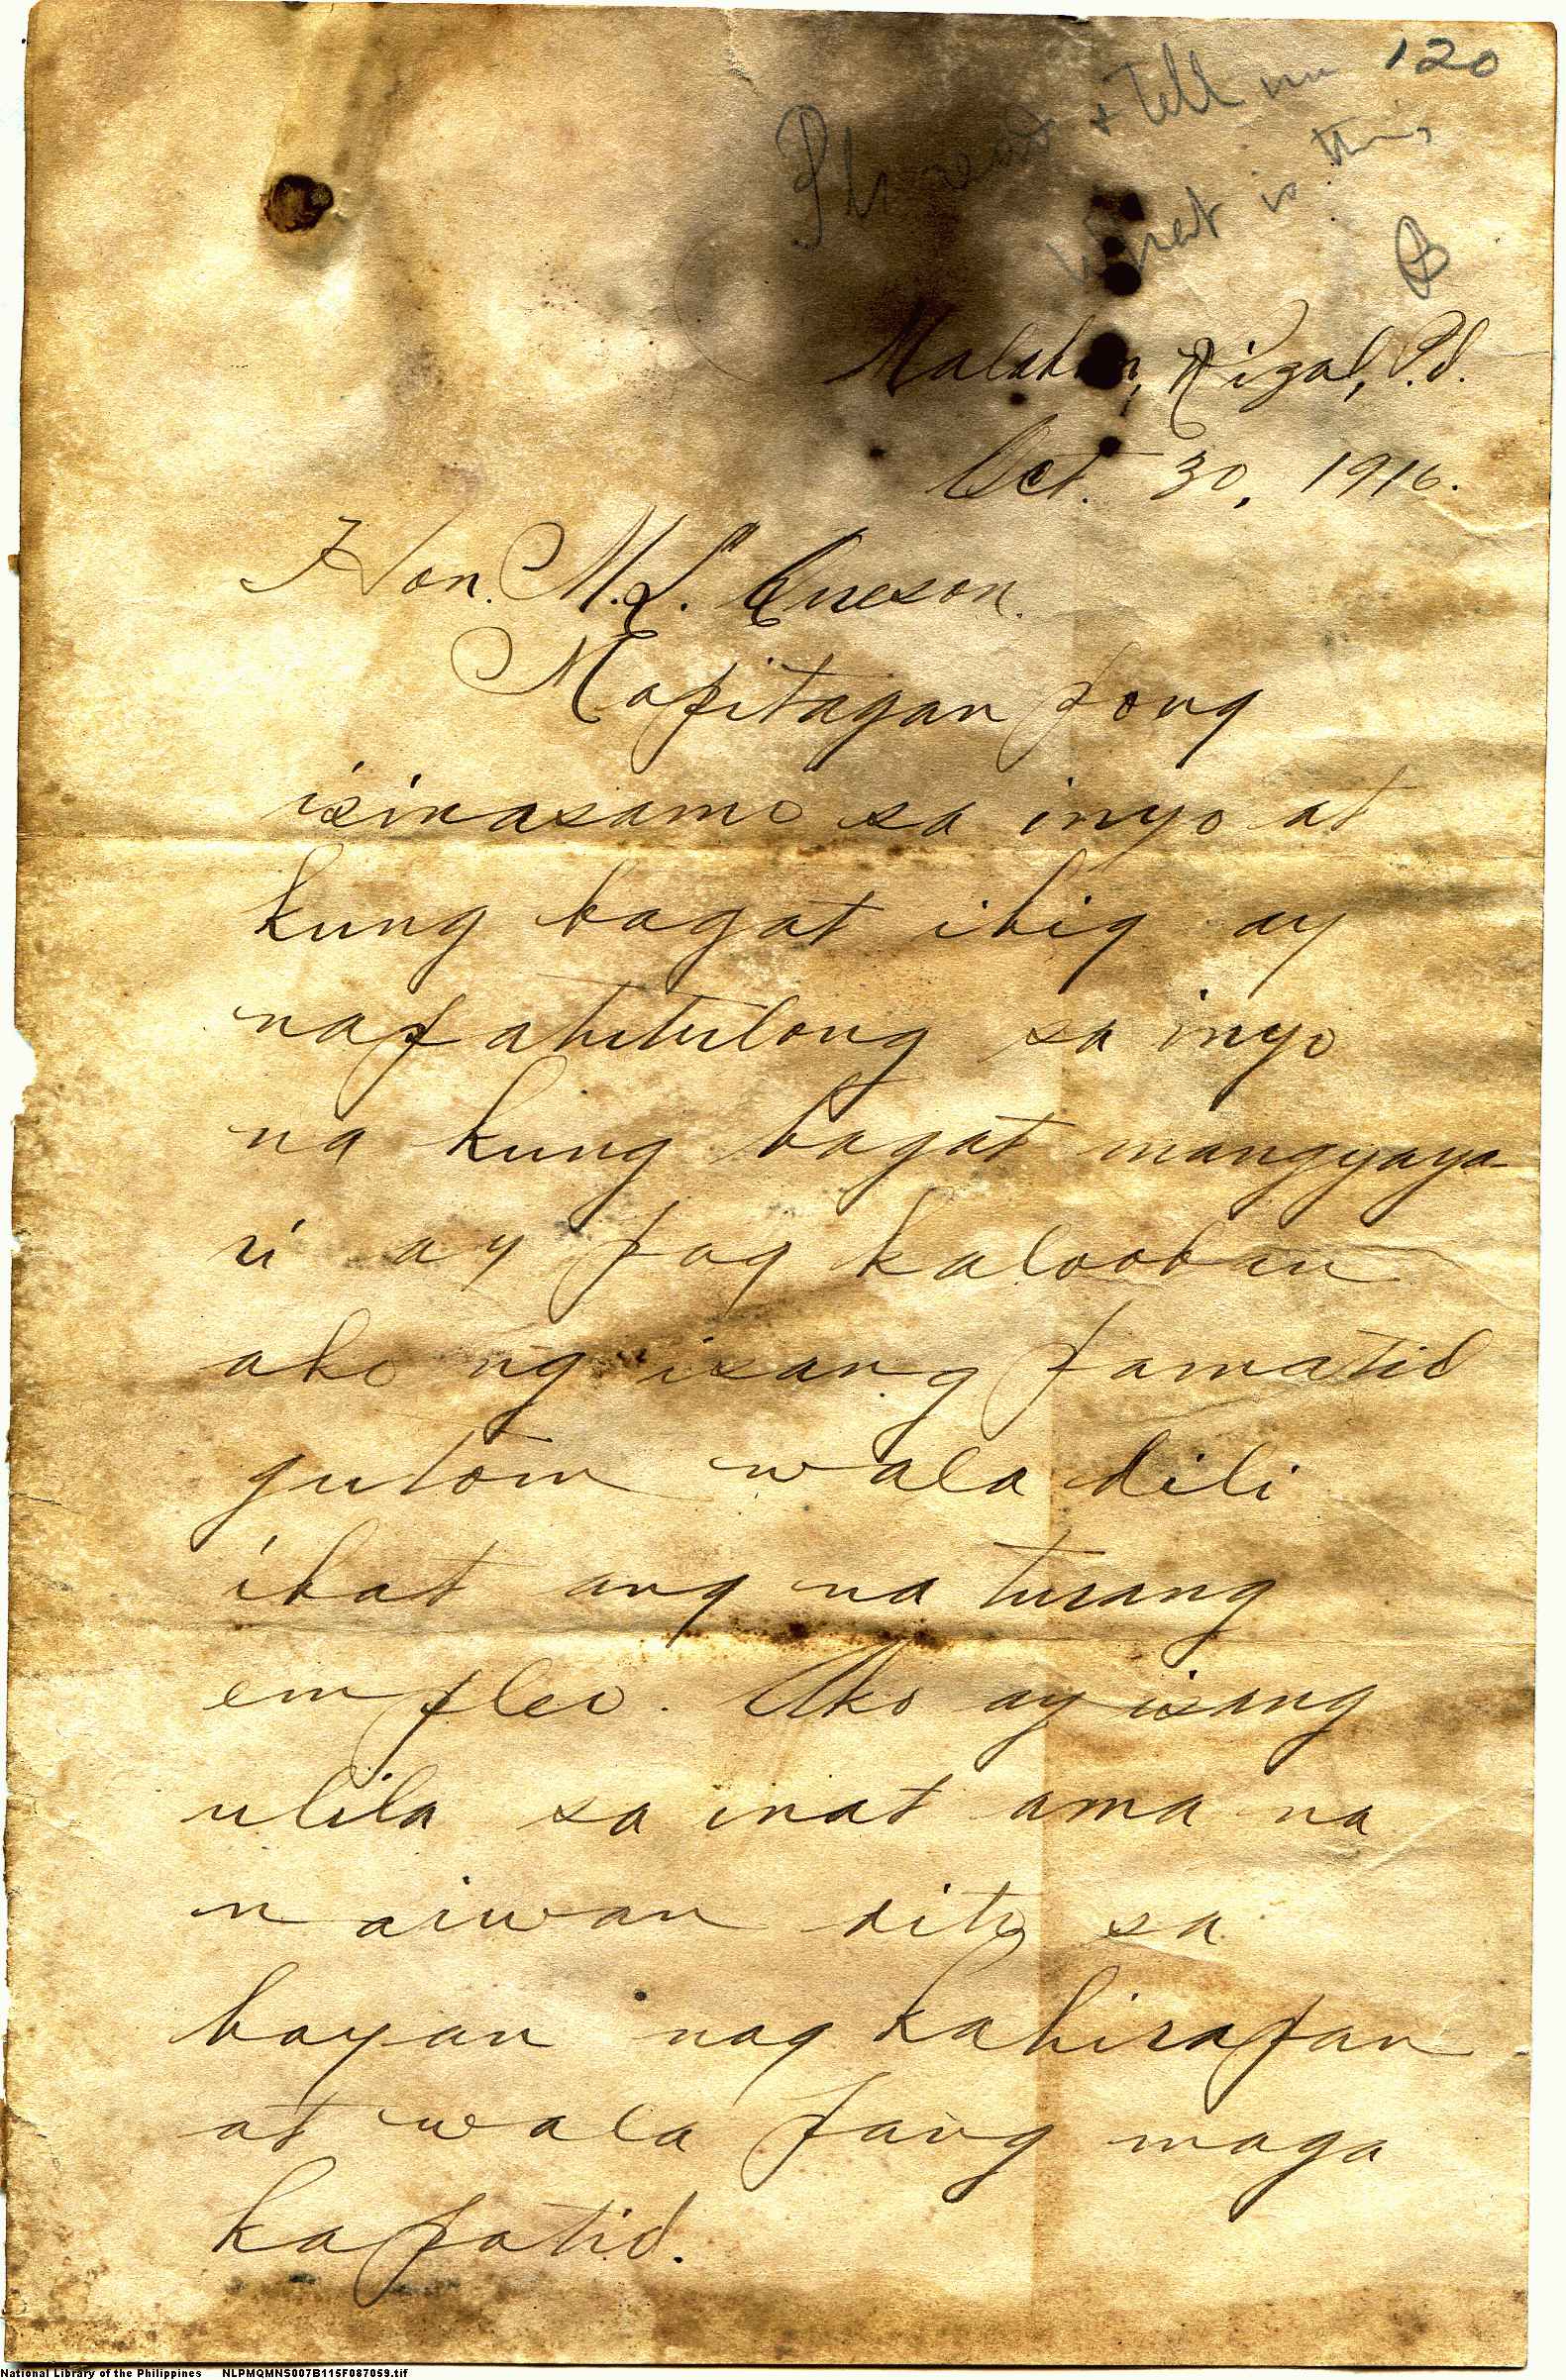 120
Pls read & tell me
what is this
Malabon, Rizal, P.I.
Oct. 30, 1916.
Hon. M.L. Queson.
Mapitagan pong
isinasamo sa inyo at
kung bagat ibig ay
napatutulong sa inyo
na kung bagat mangyaya-
ri ay pag kalooban
ako ng isang pamatid
gutom wala dili
ibat ang na turang
empleo. Ako ay isang
ulila sa inat ama na
n aiwan dito sa
bayan nag kahirapan
at wala pang maga
kapatid.
National Library of the Philippines NLPMQMNS007B115F087059.tif